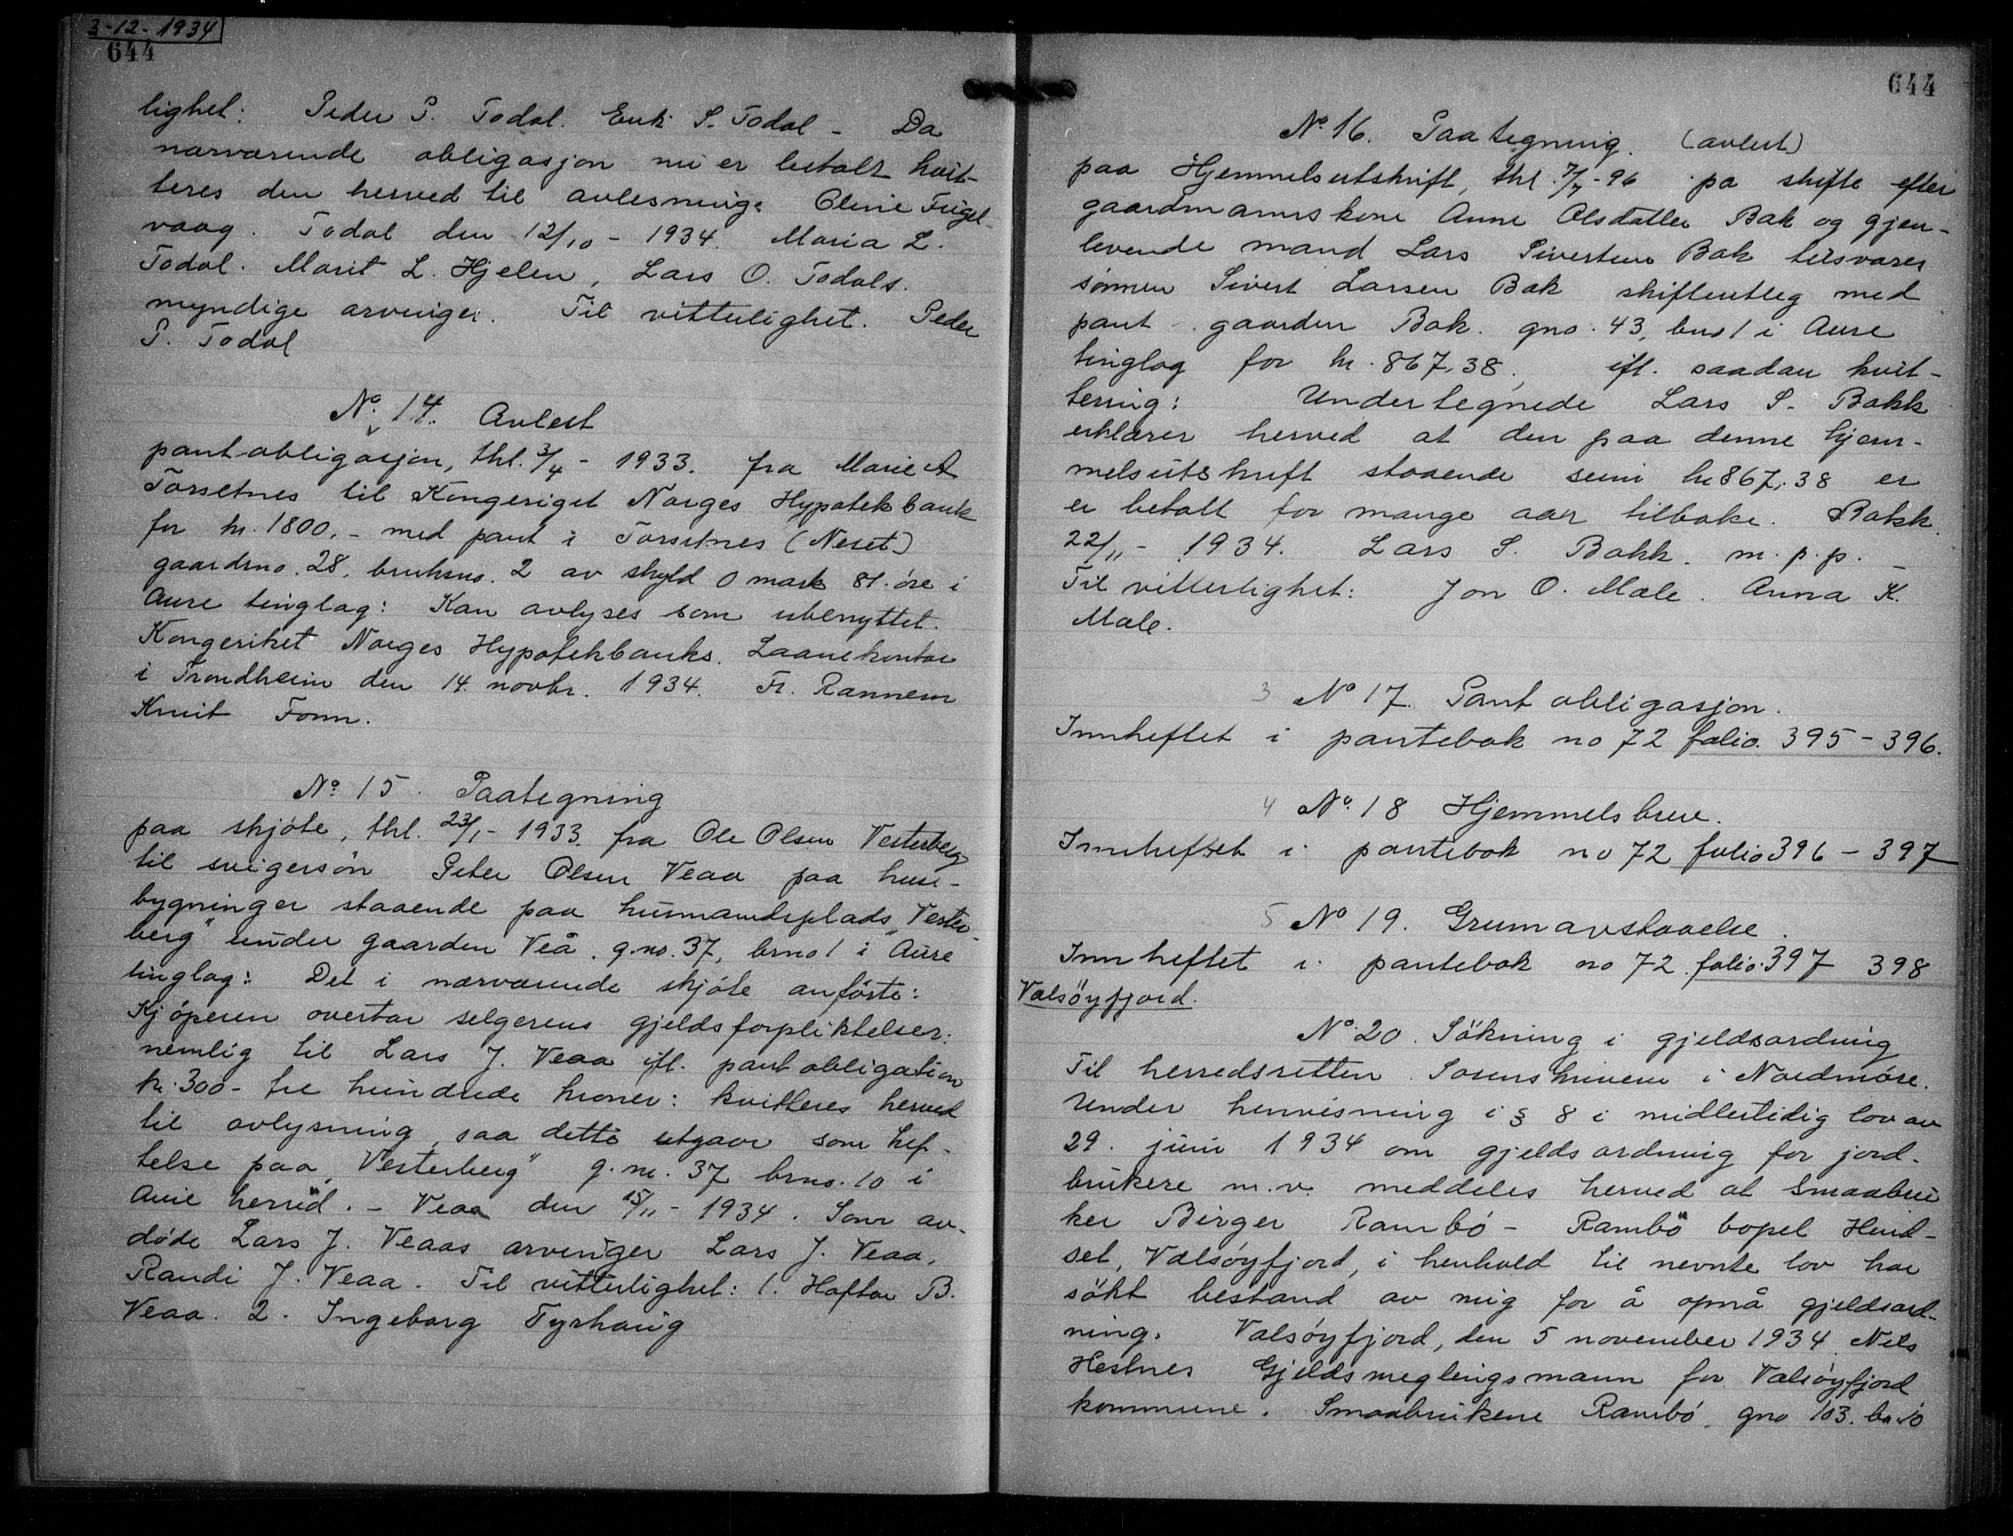 3-12-1934
644
lighet: Peder P. Todal. Erik S. Todal - Da
nærværende obligasjon nu er betalt kvit-
teres den herved til avlesning: Oline Fugel-
vaag. Todal den 12/10 - 1934. Maria L.
Todal. Marit L. Hjelen, Lars O. Todals.
myndige arvinger. Til vitterlighet. Peder
P. Todal
No. 14. Avlest
pantobligasjon, thl. 3/4 - 1933. fra Marie A
Torsetnes til Kongeriget Norges Hypotekbank
for kr. 1800.- med pant i Torsetnes (Neset)
gaardsno. 28, bruksno. 2 av skyld 0 mark 81 øre i
Aure tinglag: Kan avlyses som ubenyttet.
Kongeriket Norges Hypotekbanks. Laanekontor
i Trondheim den 14. novbr. 1934. Fr. Rannem
Knut Fonn.
No. 15. Paategning
paa skjøte, thl. 23/1 - 1933. fra Ole Olsen Vesterberg
til svigersøn Peter Olsen Veaa paa huse-
bygninger staaende paa husmandsplads "Vester-
berg" under gaarden Veå. g.no. 37, brno 1 i Aure
tinglag: Det i nærværende skjøte anførte:
Kjøperen overtar selgerens gjeldsforpliktelser:
nemlig til Lars J. Veaa ifl. pantobligation
kr. 300- tre hundrede kroner: kvitteres herved
til avlysning, saa dette utgaar som hef-
telse paa "Vesterberg" g.nr. 37 brno. 10 i
Aure herred. - Veaa den 15/11 - 1934. Som av-
døde Lars J. Veaas arvinger Lars J. Veaa,
Randi J. Veaa. Til vitterlighet: 1. Haftor B.
Veaa. 2. Ingeborg Tyrhaug
644
No. 16. Paategning. (avlest)
paa Hjemmelsutskrift, thl. 7/7-96 pa skifte efter
gaardmannskone Anne Olsdatter Bak og gjen-
levende mand Lars Sivertsen Bak tilsvarer
sønnen Sivert Larsen Bak skifteutleg med
pant i gaarden Bak. gno. 43, bno 1 i Aure
tinglag for kr. 867,38, ifl. saadan kvit-
tering: Undertegnede Lars S. Bakk
erklærer herved at den paa denne hjem-
melsutskrift staaende sum kr 867,38 er
er betalt for mange aar tilbake. Bakk
22/11 - 1934. Lars S. Bakk. m. p. p. -
Til vitterlighet: Jon O. Male. Anna K.
Male.
3 No 17. Pantobligasjon.
Innheftet i pantebok no 72 folio. 395 - 396.
4 No. 18 Hjemmelsbrev.
Innheftet i pantebok no 72 folio 396 - 397
5 No 19. Grunnavstaaelse.
Innheftet i pantebok no 72. folio. 397 398
Valsøyfjord.
No. 20. Søkning i gjeldsordning
Til herredsretten. Sorenskriveren i Nordmøre.
Under henvisning i § 8 i midlertidig lov av
29. juni 1934 om gjeldsordning for jord-
brukere m.v. meddeles herved at smaabru-
ker Birger Rambø - Rambø bopel Hend-
set, Valsøyfjord, i henhold til nevnte lov har
søkt bestand av mig for å opnå gjeldsord-
ning. Valsøyfjord, den 5 november 1934. Nils
Hestnes Gjeldsmeglingsmann for Valsøyfjord
kommune. Smaabrukene Rambø. gno 103. bno 10